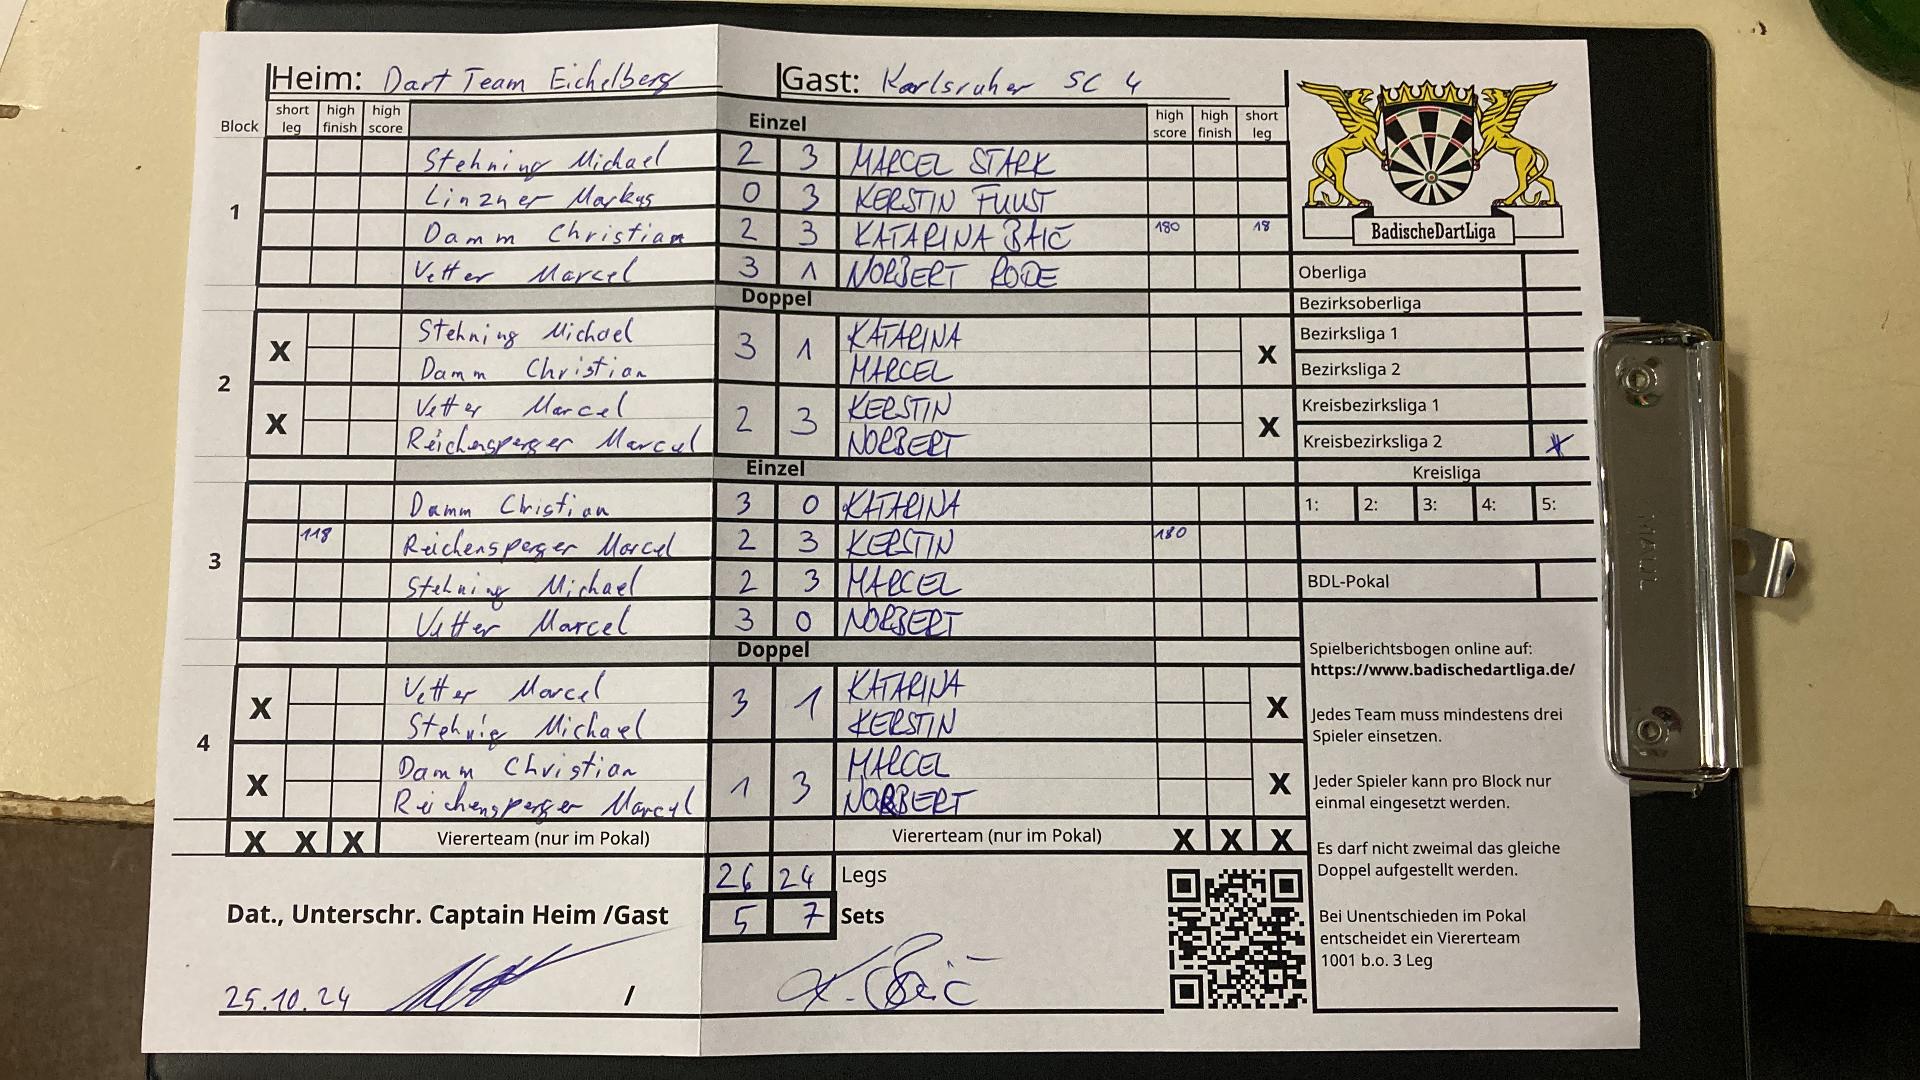 Heim: Dart Team Eichelberg Gast: Karlsruher SC 4
Block short leg high finish high score Einzel high score high finish short leg
1
Stehning Michael 2 3 MARCEL STARK
Linzner Markus 0 3 KERSTIN FUUST
Damm Christian 2 3 KATARINA BAIĆ 180 18
Vetter Marcel 3 1 NORBERT RODE
Doppel
2
X Stehning Michael 3 1 KATARINA X
Damm Christian MARCEL
X Vetter Marcel 2 3 KERSTIN X
Reichensperger Marcel NORBERT
Einzel
3
Damm Christian 3 0 KATARINA
118 Reichensperger Marcel 2 3 KERSTIN 180
Stehning Michael 2 3 MARCEL
Vetter Marcel 3 0 NORBERT
Doppel
4
X Vetter Marcel 3 1 KATARINA X
Stehnig Michael KERSTIN
X Damm Christian 1 3 MARCEL X
Reichensperger Marcel NORBERT
X X X Viererteam (nur im Pokal) Viererteam (nur im Pokal) X X X
26 24 Legs
5 7 Sets
Dat., Unterschr. Captain Heim /Gast
25.10.24 / K. Baić
BadischeDartLiga
Oberliga
Bezirksoberliga
Bezirksliga 1
Bezirksliga 2
Kreisbezirksliga 1
Kreisbezirksliga 2 X
Kreisliga
1: 2: 3: 4: 5:
BDL-Pokal
Spielberichtsbogen online auf:
https://www.badischedartliga.de/
Jedes Team muss mindestens drei
Spieler einsetzen.
Jeder Spieler kann pro Block nur
einmal eingesetzt werden.
Es darf nicht zweimal das gleiche
Doppel aufgestellt werden.
Bei Unentschieden im Pokal
entscheidet ein Viererteam
1001 b.o. 3 Leg
MAUL